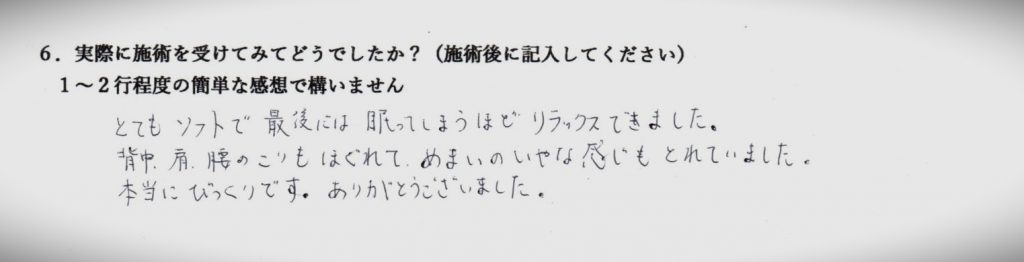 6．実際に施術を受けてみてどうでしたか？（施術後に記入してください）
1～2行程度の簡単な感想で構いません
とても ソフトで 最後には 眠ってしまうほど リラックスできました。
背中、肩、腰のこりも ほぐれて、めまいの いやな 感じも とれていました。
本当に びっくりです。ありがとうございました。